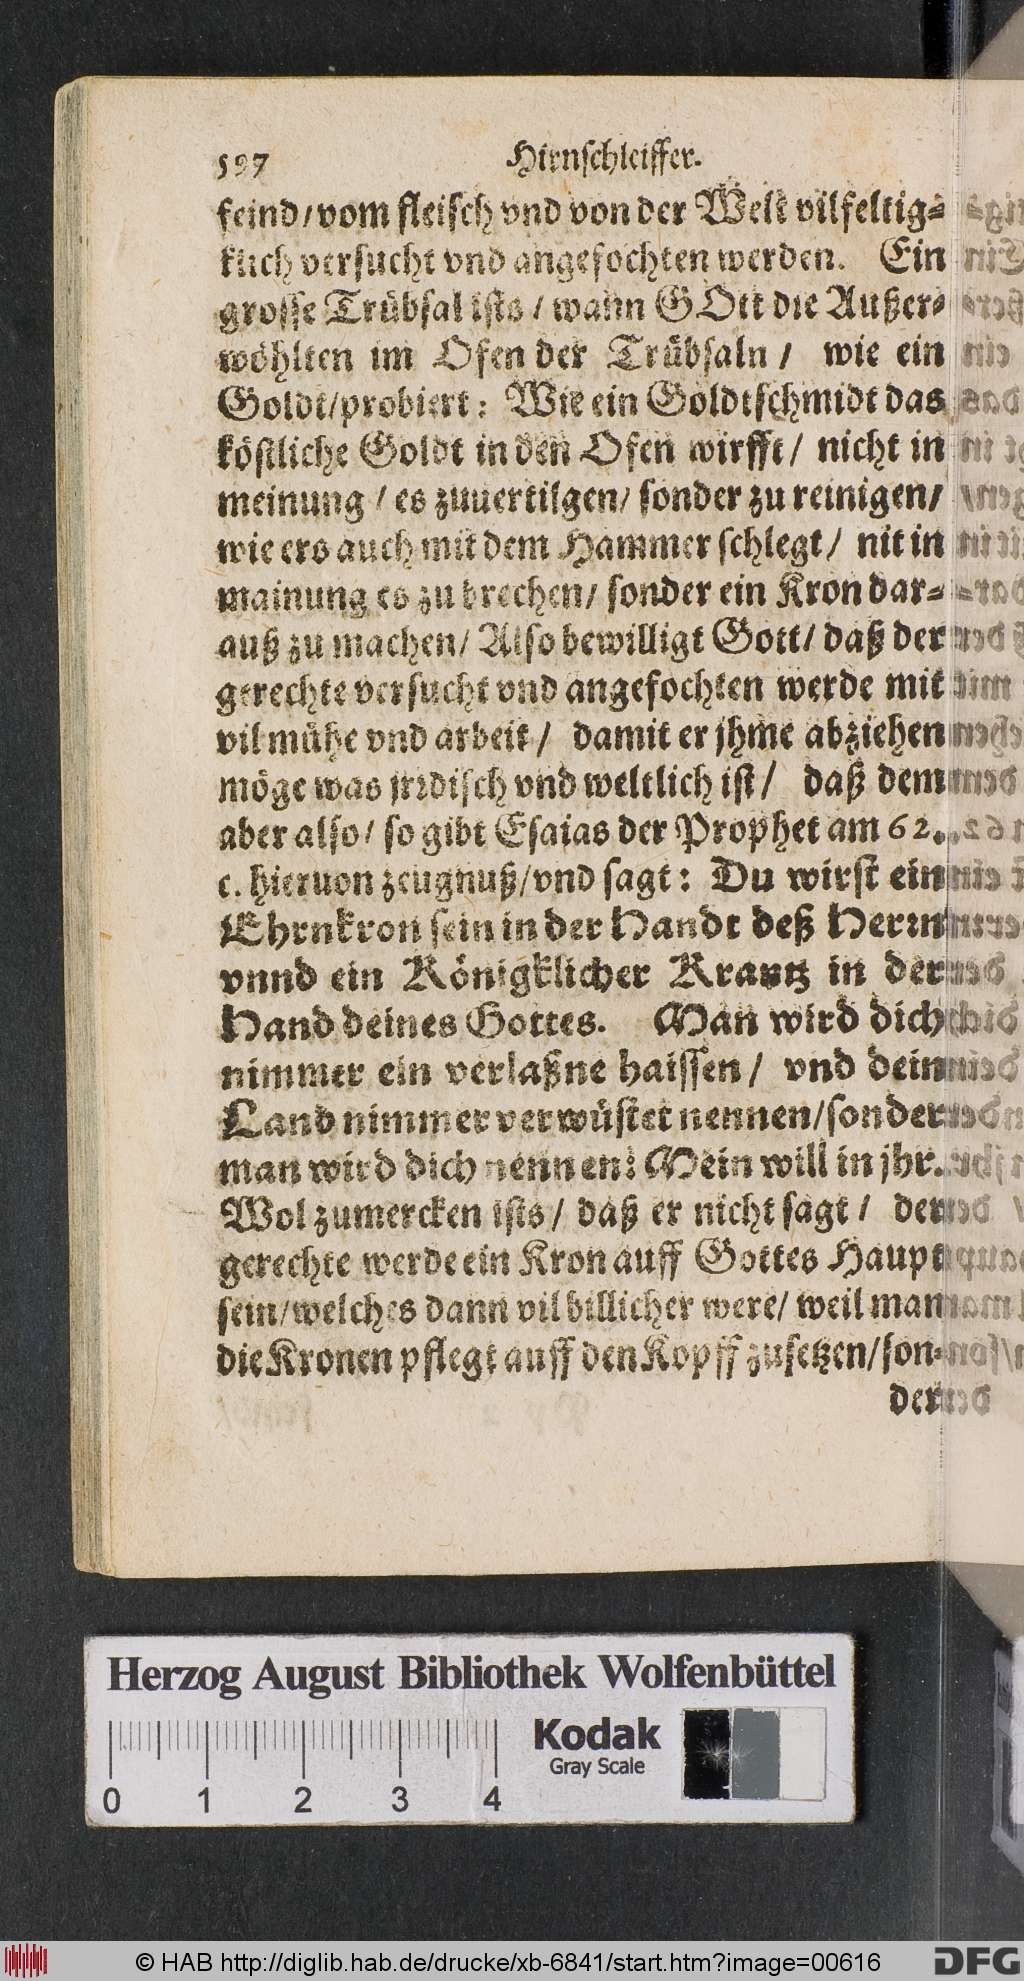 597 Hirnschleiffer.
feind/vom fleisch vnd von der Welt vilfeltig⸗
klich versucht vnd angefochten werden. Ein
grosse Trübsal ists / wann GOtt die Außer⸗
wöhlten im Ofen der Trübsaln / wie ein
Goldt/probiert: Wie ein Goldtschmidt das
köstliche Goldt in den Ofen wirfft / nicht in
meinung / es zuuertilgen/ sonder zu reinigen/
wie ers auch mit dem Hammer schlegt / nit in
mainung es zu brechen/ sonder ein Kron dar⸗
auß zu machen/ Also bewilligt Gott/ daß der
gerechte versucht vnd angefochten werde mit
vil mühe vnd arbeit / damit er jhme abziehen
möge was jrrdisch vnd weltlich ist / daß dem
aber also/ so gibt Esaias der Prophet am 62.
c. hieruon zeugnuß/vnd sagt: Du wirst ein
Ehrnkron sein in der Handt deß Herrn
vnnd ein Königklicher Krantz in der
Hand deines Gottes. Man wird dich
nimmer ein verlaßne haissen / vnd dein
Land nimmer verwüstet nennen/sonder
man wird dich nennen: Mein will in jhr.
Wol zumercken ists / daß er nicht sagt / der
gerechte werde ein Kron auff Gottes Haupt
sein/welches dann vil billicher were/ weil man
die Kronen pflegt auff den Kopff zusetzen/son⸗
der
Herzog August Bibliothek Wolfenbüttel
Kodak
Gray Scale
0 1 2 3 4
© HAB http://diglib.hab.de/drucke/xb-6841/start.htm?image=00616
DFG